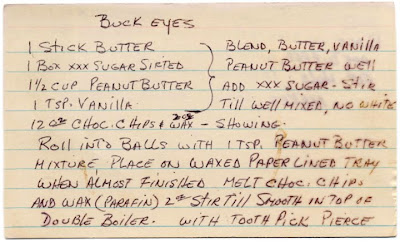 BUCK EYES
1 STICK BUTTER BLEND, BUTTER, VANILLA
1 BOX XXX SUGAR SIFTED PEANUT BUTTER WELL
1½ CUP PEANUT BUTTER ADD XXX SUGAR - STIR
1 TSP. VANILLA TILL WELL MIXED, NO WHITE
12 oz CHOC. CHIPS & 2 oz WAX - SHOWING.
ROLL INTO BALLS WITH 1 TSP. PEANUT BUTTER
MIXTURE PLACE ON WAXED PAPER LINED TRAY
WHEN ALMOST FINISHED MELT CHOC. CHIPS
AND WAX (PARAFIN) 2 oz STIR TILL SMOOTH IN TOP OF
DOUBLE BOILER. WITH TOOTH PICK PIERCE